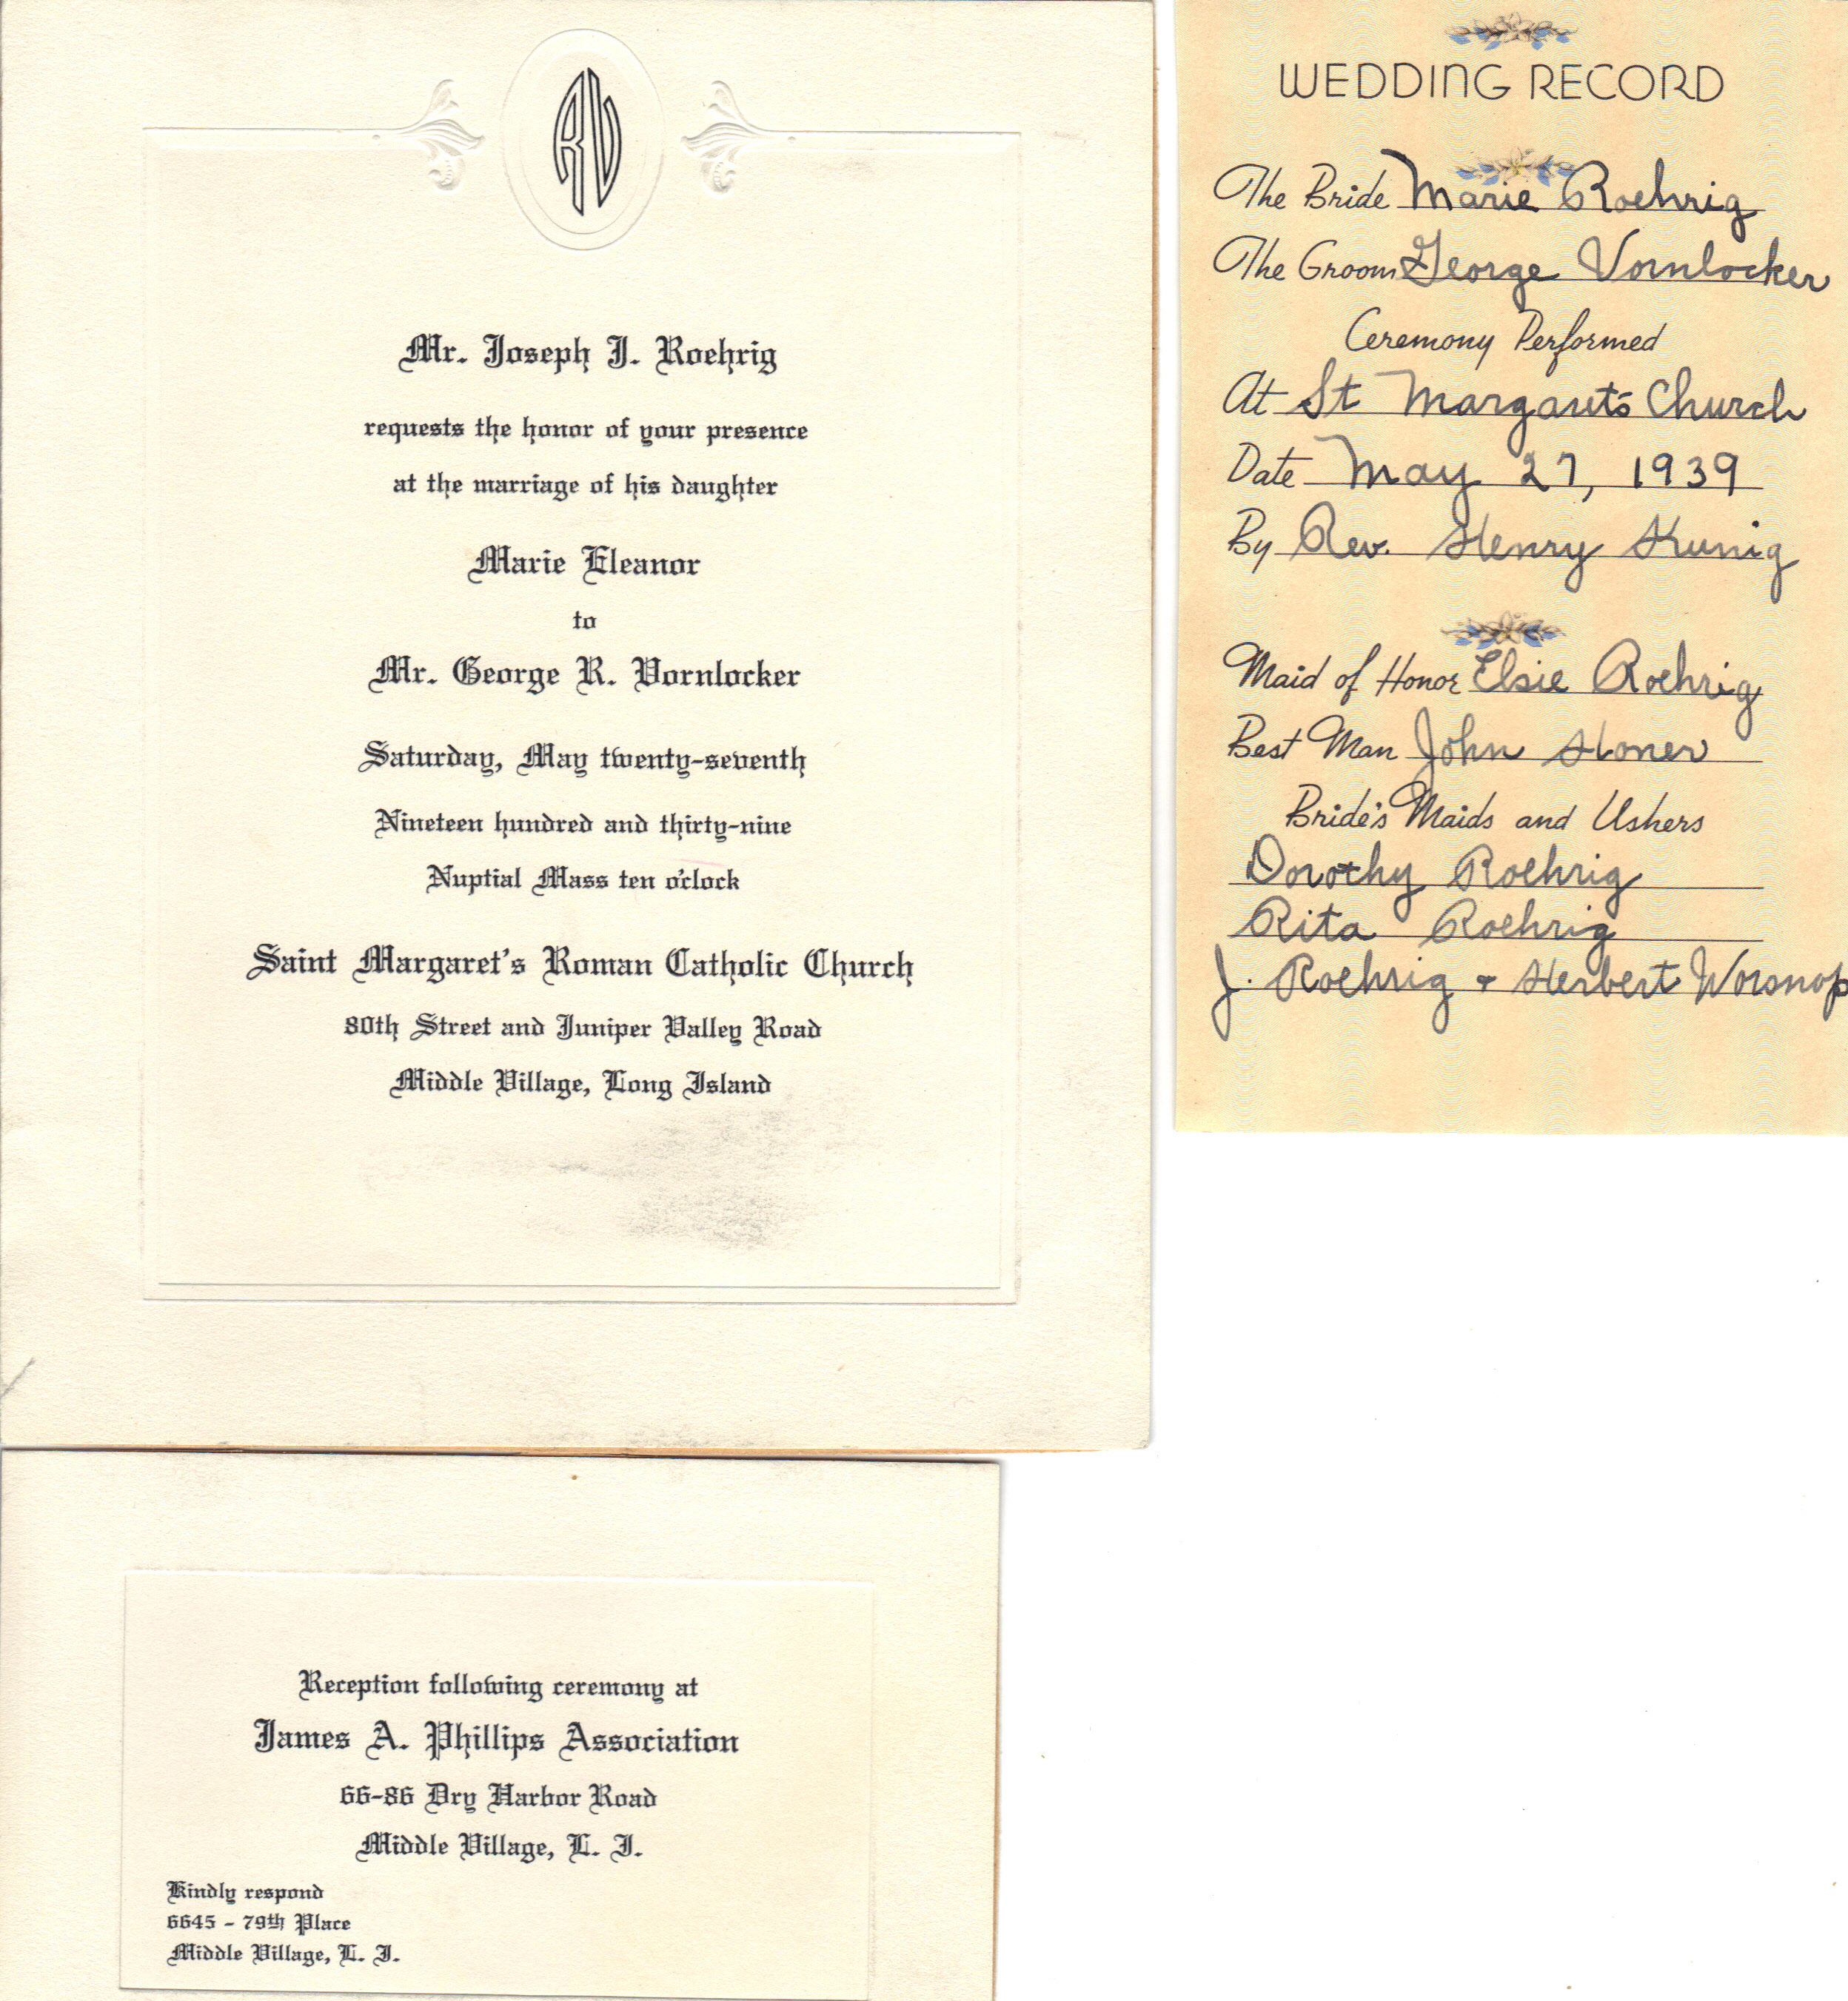 RV
Mr. Joseph J. Roehrig
requests the honor of your presence
at the marriage of his daughter
Marie Eleanor
to
Mr. George R. Vornlocker
Saturday, May twenty-seventh
Nineteen hundred and thirty-nine
Nuptial Mass ten o'clock
Saint Margaret's Roman Catholic Church
80th Street and Juniper Valley Road
Middle Village, Long Island
Reception following ceremony at
James A. Phillips Association
66-86 Dry Harbor Road
Middle Village, L. I.
Kindly respond
6645 - 79th Place
Middle Village, L. I.
WEDDING RECORD
The Bride Marie Roehrig
The Groom George Vornlocker
Ceremony Performed
At St Margaret's Church
Date May 27, 1939
By Rev. Henry
Maid of Honor Elsie Roehrig
Best Man John
Bride's Maids and Ushers
Dorothy Roehrig
Rita Roehrig
J. Roehrig + Herbert Worsnop